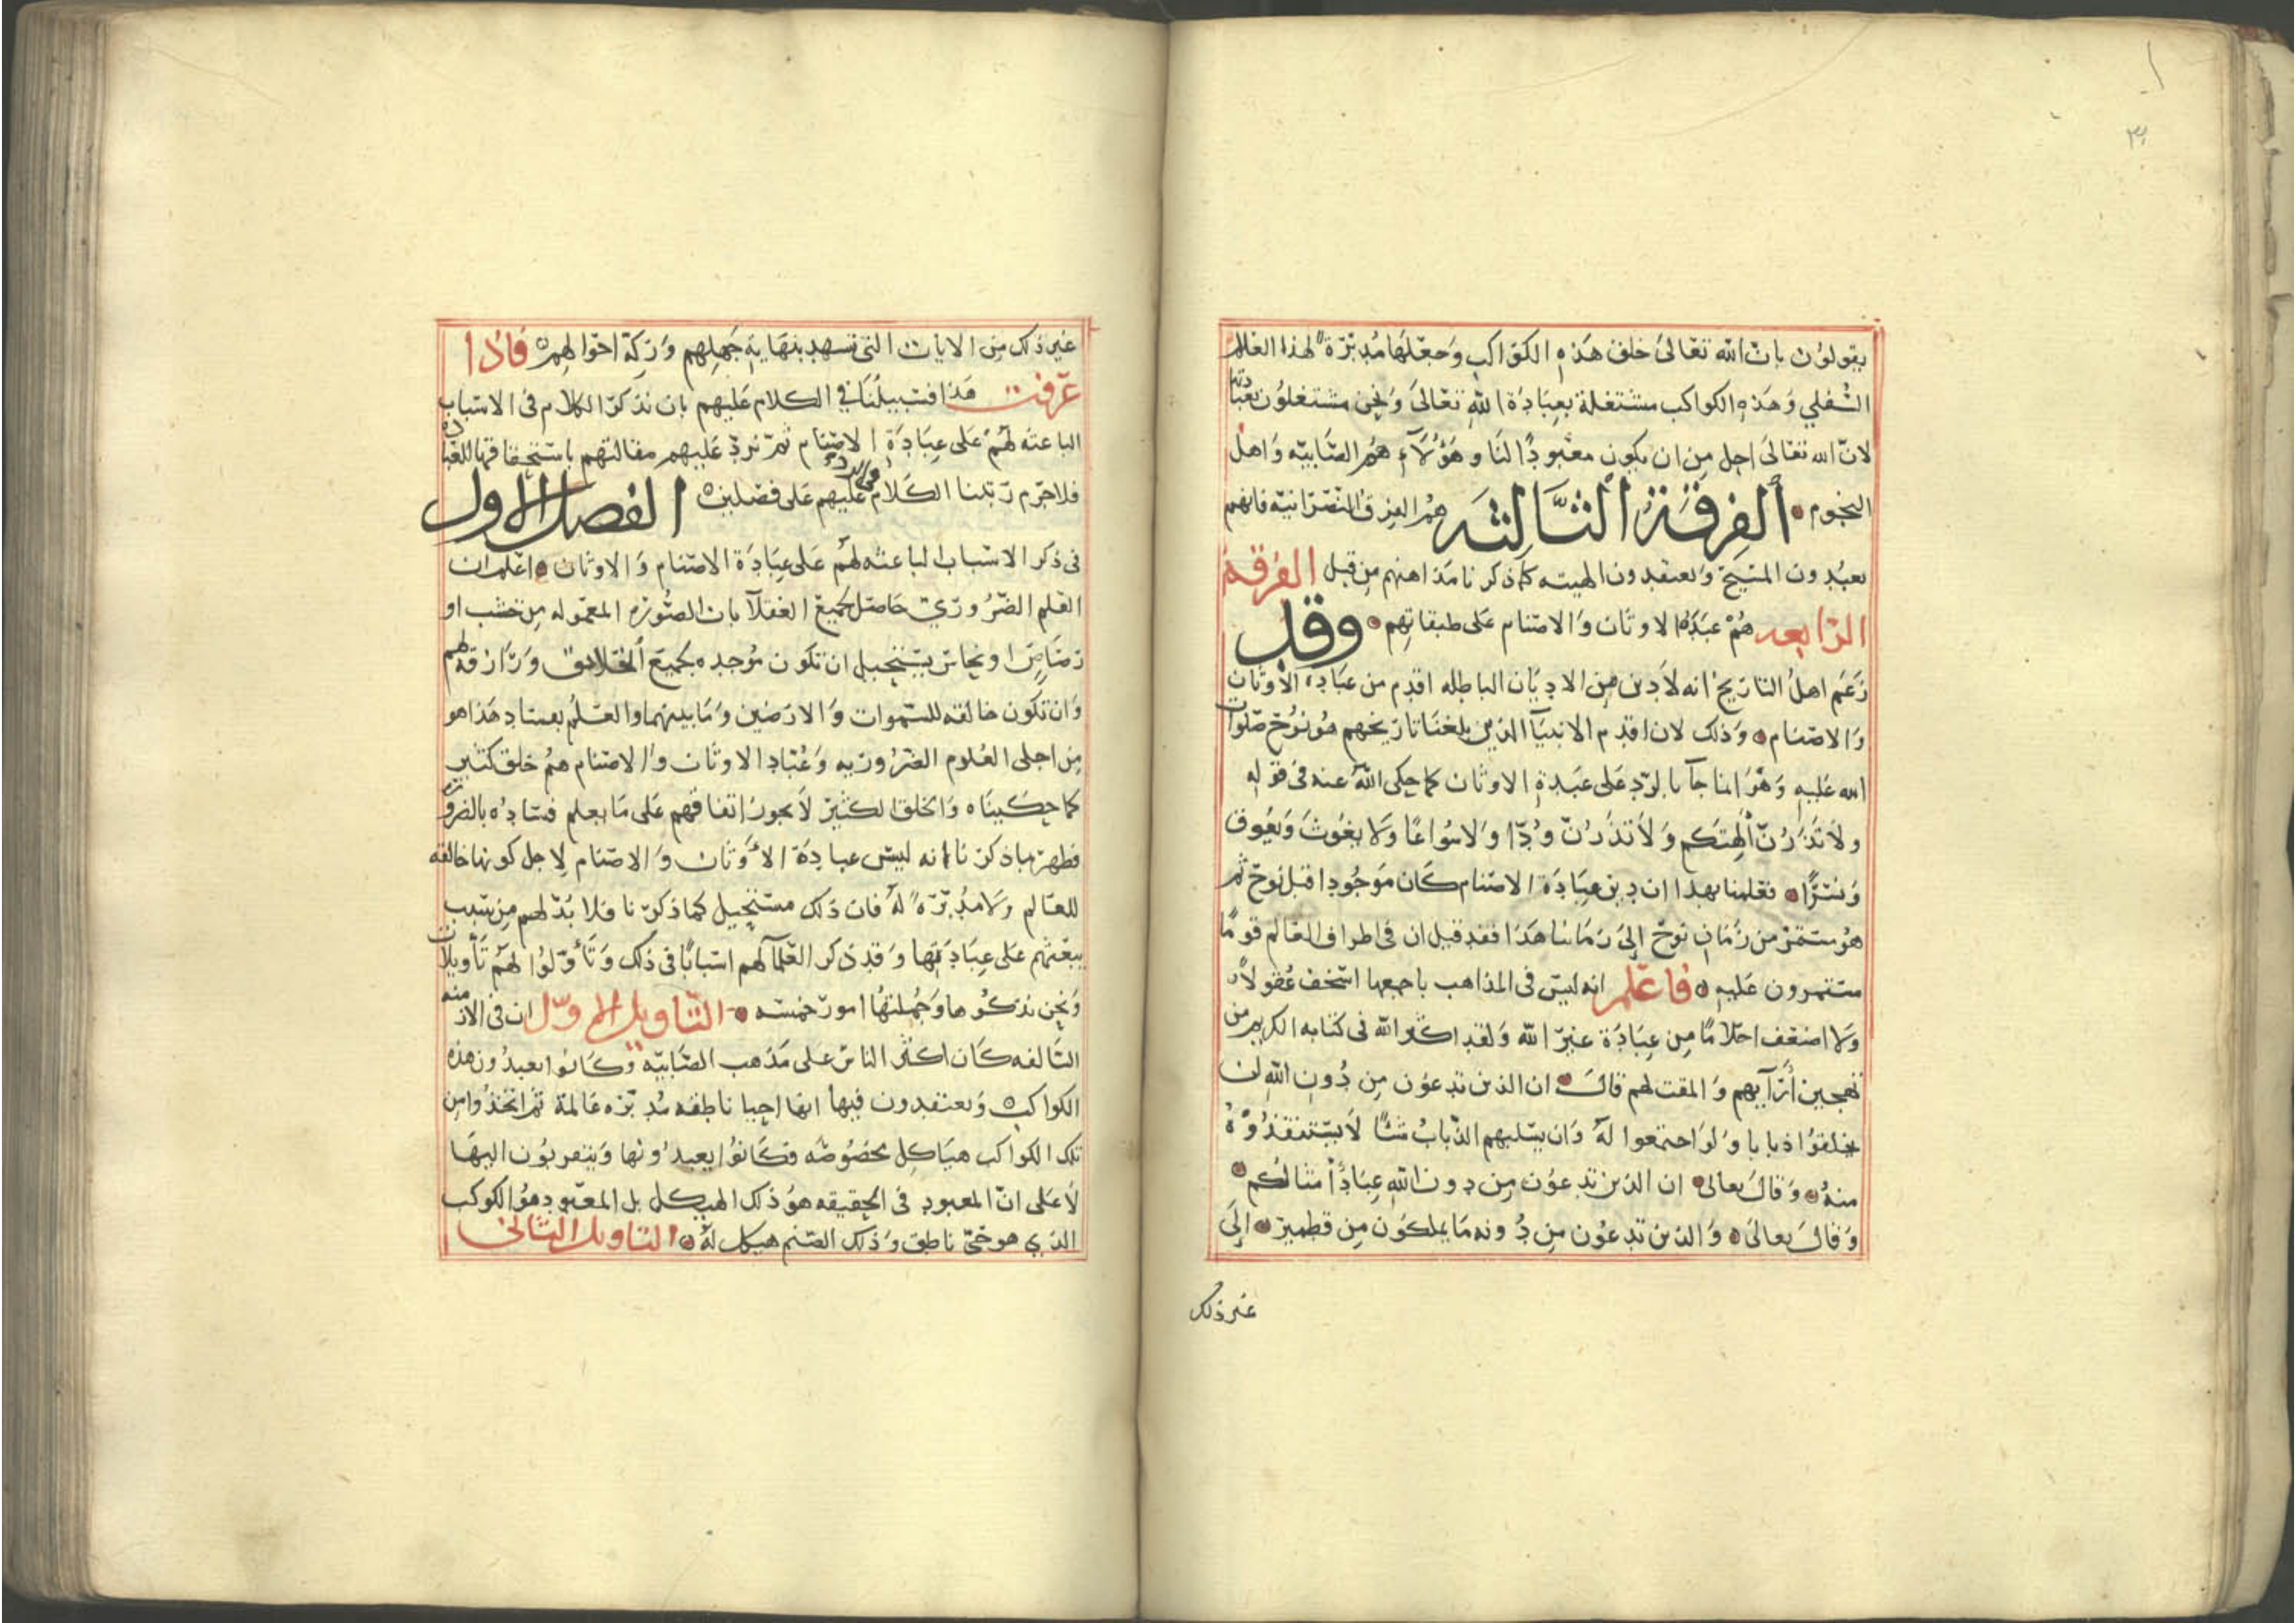 ٣
يقولون بان الله تعالى خلق هذه الكواكب وجعلها مدبّرة لهذا العالم
السُّفلي وهذه الكواكب مشتغلة بعبادة الله تعالى ونحن مشتغلون بعبادتها
لانّ الله تعالى اجل من ان يكون معبودًا لنا وهؤلآء هم الصّابيه واهل
النجوم الفرقة الثالثه هم الفرق النصرانيه فانهم
يعبدون المسيح ويعتقدون الهيته كما ذكرنا مذاهبهم من قبل الفرقة
الرّابعه هُمْ عبدة الاوثان والاصنام على طبقاتهم وقد
زعم اهل التاريخ انه لا دين من الاديان الباطله اقدم من عبادة الاوثان
والاصنام وذلك لان اقدم الانبيآ الذين بلغنا تاريخهم هو نوح صلوات
الله عليه وهو انما جآ بالردّ على عبدة الاوثان كما حكى الله عنه في قوله
ولا تذرنّ الهتكم ولا تذرنّ ودًّا ولا سُواعًا ولا يغوث ويعوق
ونسرًا فعلمنا بهذا ان دين عبادة الاصنام كان موجودا قبل نوح ثم
هو مستمرّ من زمان نوح الى زماننا هذا فقد قيل ان في اطراف العالم قومًا
مستمرون عليه فاعلم انه ليس في المذاهب باجمعها اسخف عقولاً
ولا اضعف احلامًا من عبادة غير الله ولقد اكثر الله في كتابه الكريم من
تهجين ارآيهم والمقت لهم قال ان الذين تدعون من دون الله لن
يخلقوا ذبابا ولو اجتمعوا له وان يسلبهم الذّباب شئًا لا يستنقذوه
منه وقال تعالى ان الذين تدعون من دون الله عبادٌ امثالكم
وقال تعالى والذين تدعون من دونه ما يملكون من قطمير الى
غير ذلك
غير ذلك من الايات التي تشهد بنهاية جهلهم وركّة احوالهم فاذا
عرفت هذا فسبيلنا في الكلام عليهم بان نذكر الكلام في الاسباب
الباعثه لهم على عبادة الاصنام ثم نردّ عليهم مقالتهم باستحقاقها للعبادة
فلا جرم رتبنا الكلام في الرد عليهم على فصلين الفصل الاول
في ذكر الاسباب الباعثه لهم على عبادة الاصنام والاوثان اعلم ان
العلم الضّروريّ حاصل لجميع العقلآ بان الصّورة المعموله من خشب او
رصاص او نحاس يستحيل ان تكون موجده لجميع الخلايق ورازقة لهم
وان تكون خالقه للسّموات والارضين وما بينهما والعلم بفساد هذا هو
من اجلى العلوم الضّروريه وعبّاد الاوثان والاصنام هم خلق كثير
كما حكيناه والخلق الكثير لا يجوز اتفاقهم على ما يعلم فساده بالضرورة
فظهر بما ذكرنا انه ليس عبادة الاوثان والاصنام لاجل كونها خالقه
للعالم ولا مدبّرة له فان ذلك مستحيل كما ذكرنا فلا بُدّ لهم من سبب
يبعثهم على عبادتها وقد ذكر العلمآ لهم اسبابًا في ذلك وتأوّلوا لهم تأويلات
ونحن نذكرها وجملتها امور خمسه التّاويل الاوّل ان في الازمنه
السّالفه كان اكثر الناس على مذهب الصّابيه وكانوا يعبدون هذه
الكواكب ويعتقدون فيها انها احيا ناطقه مدبّره عالمة ثم اتخذوا من
تلك الكواكب هياكل مخصوصه وكانوا يعبدونها ويتقربون اليها
لا على انّ المعبود في الحقيقه هو ذلك الهيكل بل المعبود هو الكوكب
الذي هو حيّ ناطق وذلك الصّنم هيكل له التاويل الثاني